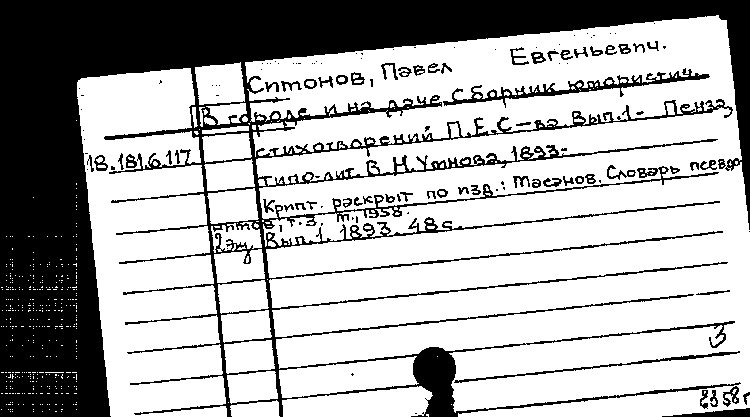 Ситонов, Павел Евгеньевич.
В городе и на даче. Сборник юмористич.
стихотворений П.Е.С-ва Вып.1- Пенза,
18.181.6.117
типо-лит. В.Н.Умнова, 1893-
Крипт. раскрыт по изд.: Масанов. Словарь псевдо-
нимов, т.3, М., 1958.
2эк Вып.1. 1893. 48с.
3